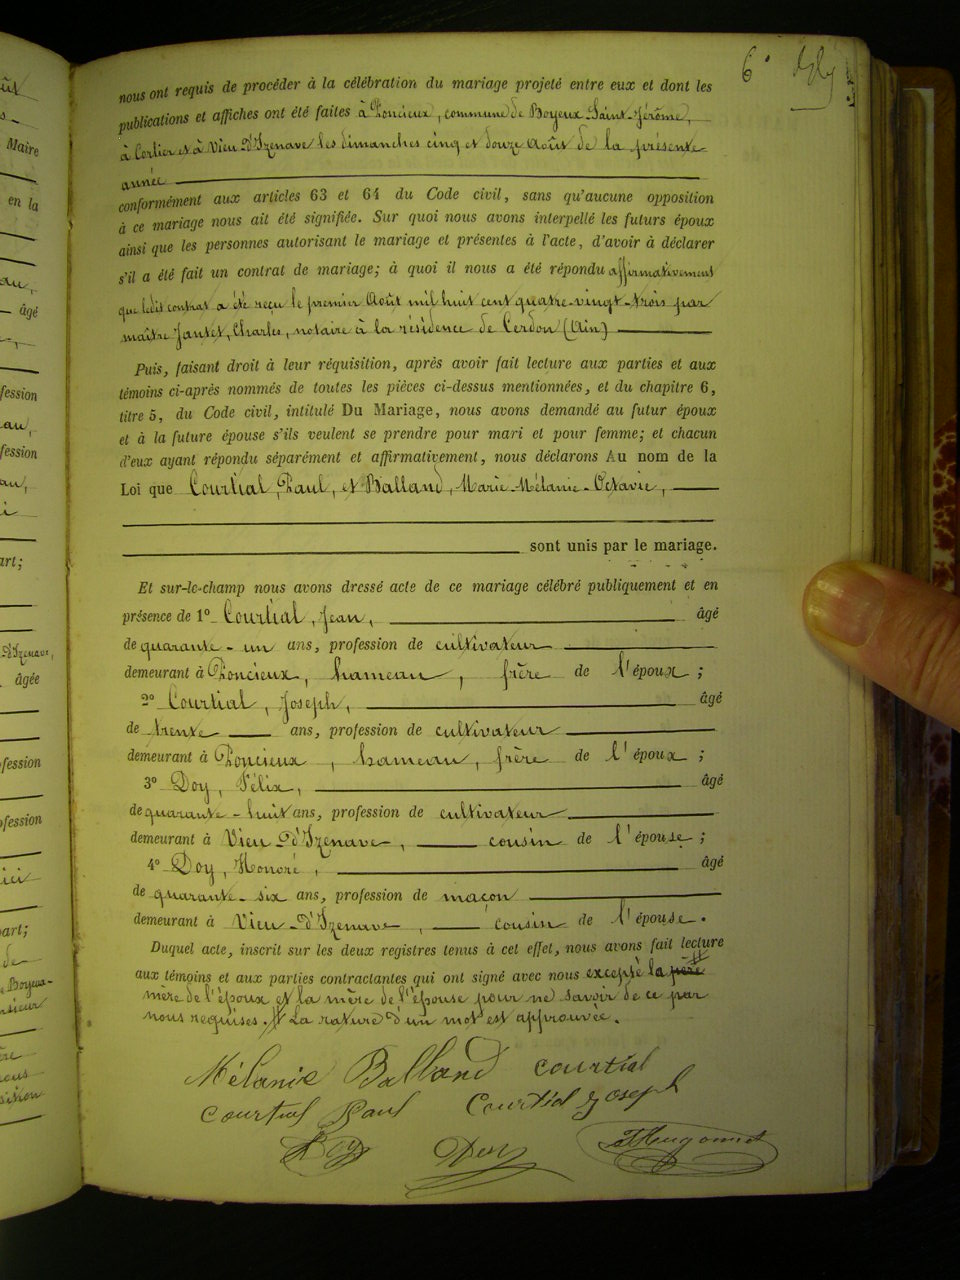 6e
nous ont requis de procéder à la célébration du mariage projeté entre eux et dont les
publications et affiches ont été faites à Poncieux, commune de Boyeux-Saint-Jérôme,
à Corlier et à Vieu-d'Izenave les dimanches cinq et douze Août de la présente
année
conformément aux articles 63 et 64 du Code civil, sans qu'aucune opposition
à ce mariage nous ait été signifiée. Sur quoi nous avons interpellé les futurs époux
ainsi que les personnes autorisant le mariage et présentes à l'acte, d'avoir à déclarer
s'il a été fait un contrat de mariage; à quoi il nous a été répondu affirmativement
que ledit contrat a été reçu le premier Août mil huit cent quatre-vingt-trois par
maître Jantet, Charles, notaire à la résidence de Cerdon (Ain)
Puis, faisant droit à leur réquisition, après avoir fait lecture aux parties et aux
témoins ci-après nommés de toutes les pièces ci-dessus mentionnées, et du chapitre 6,
titre 5, du Code civil, intitulé Du Mariage, nous avons demandé au futur époux
et à la future épouse s'ils veulent se prendre pour mari et pour femme; et chacun
d'eux ayant répondu séparément et affirmativement, nous déclarons Au nom de la
Loi que Courtial, Paul, et Balland, Marie-Mélanie-Octavie,
sont unis par le mariage.
Et sur-le-champ nous avons dressé acte de ce mariage célébré publiquement et en
présence de 1º Courtial, Jean, âgé
de quarante-un ans, profession de cultivateur
demeurant à Poncieux, hameau, frère de l'époux ;
2º Courtial, Joseph, âgé
de trente ans, profession de cultivateur
demeurant à Poncieux, hameau, frère de l'époux ;
3º Doy, Félix, âgé
de quarante-huit ans, profession de cultivateur
demeurant à Vieu-d'Izenave, cousin de l'épouse ;
4º Doy, Honoré, âgé
de quarante-six ans, profession de maçon
demeurant à Vieu-d'Izenave, cousin de l'épouse.
Duquel acte, inscrit sur les deux registres tenus à cet effet, nous avons fait lecture
aux témoins et aux parties contractantes qui ont signé avec nous excepté la père
mère de l'époux et la mère de l'épouse pour ne savoir de ce par
nous requises. // La rature d'un mot est approuvée.
Mélanie Balland Courtial
Courtial Paul Courtial Joseph
Doy Doy